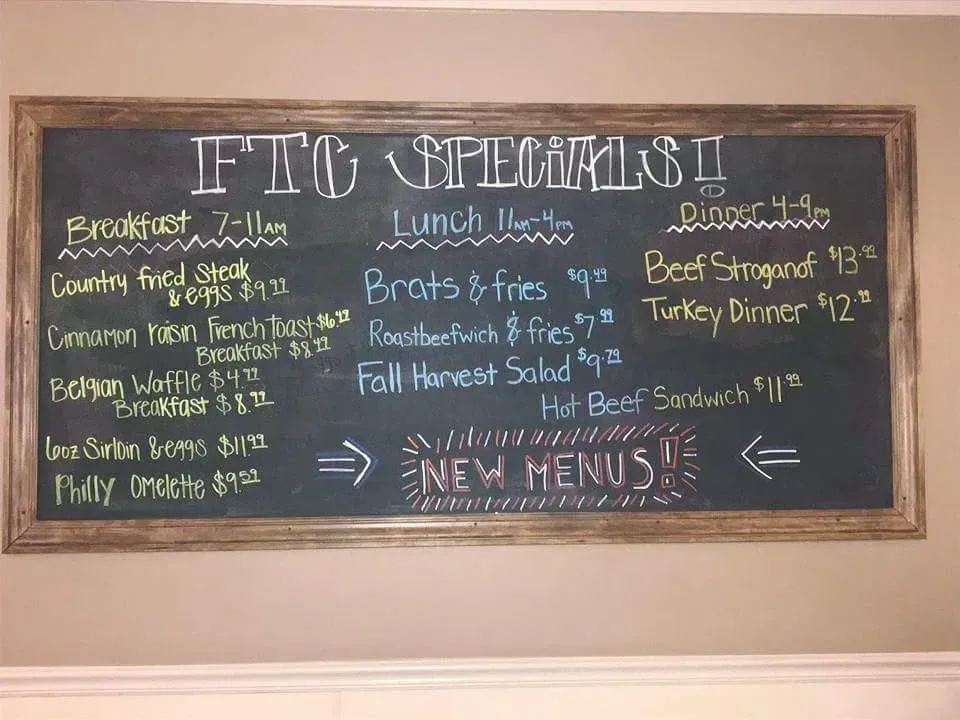 FTC SPECiALS!
Breakfast 7-11AM
Country fried Steak
& eggs $9.99
Cinnamon raisin French Toast $6.49
Breakfast $8.49
Belgian Waffle $4.99
Breakfast $8.99
6oz Sirloin & eggs $11.99
Philly Omelette $9.59
Lunch 11AM-4PM
Brats & fries $9.49
Roastbeefwich & fries $7.99
Fall Harvest Salad $9.79
Hot Beef Sandwich $11.99
Dinner 4-9PM
Beef Stroganof $13.99
Turkey Dinner $12.99
NEW MENUS!